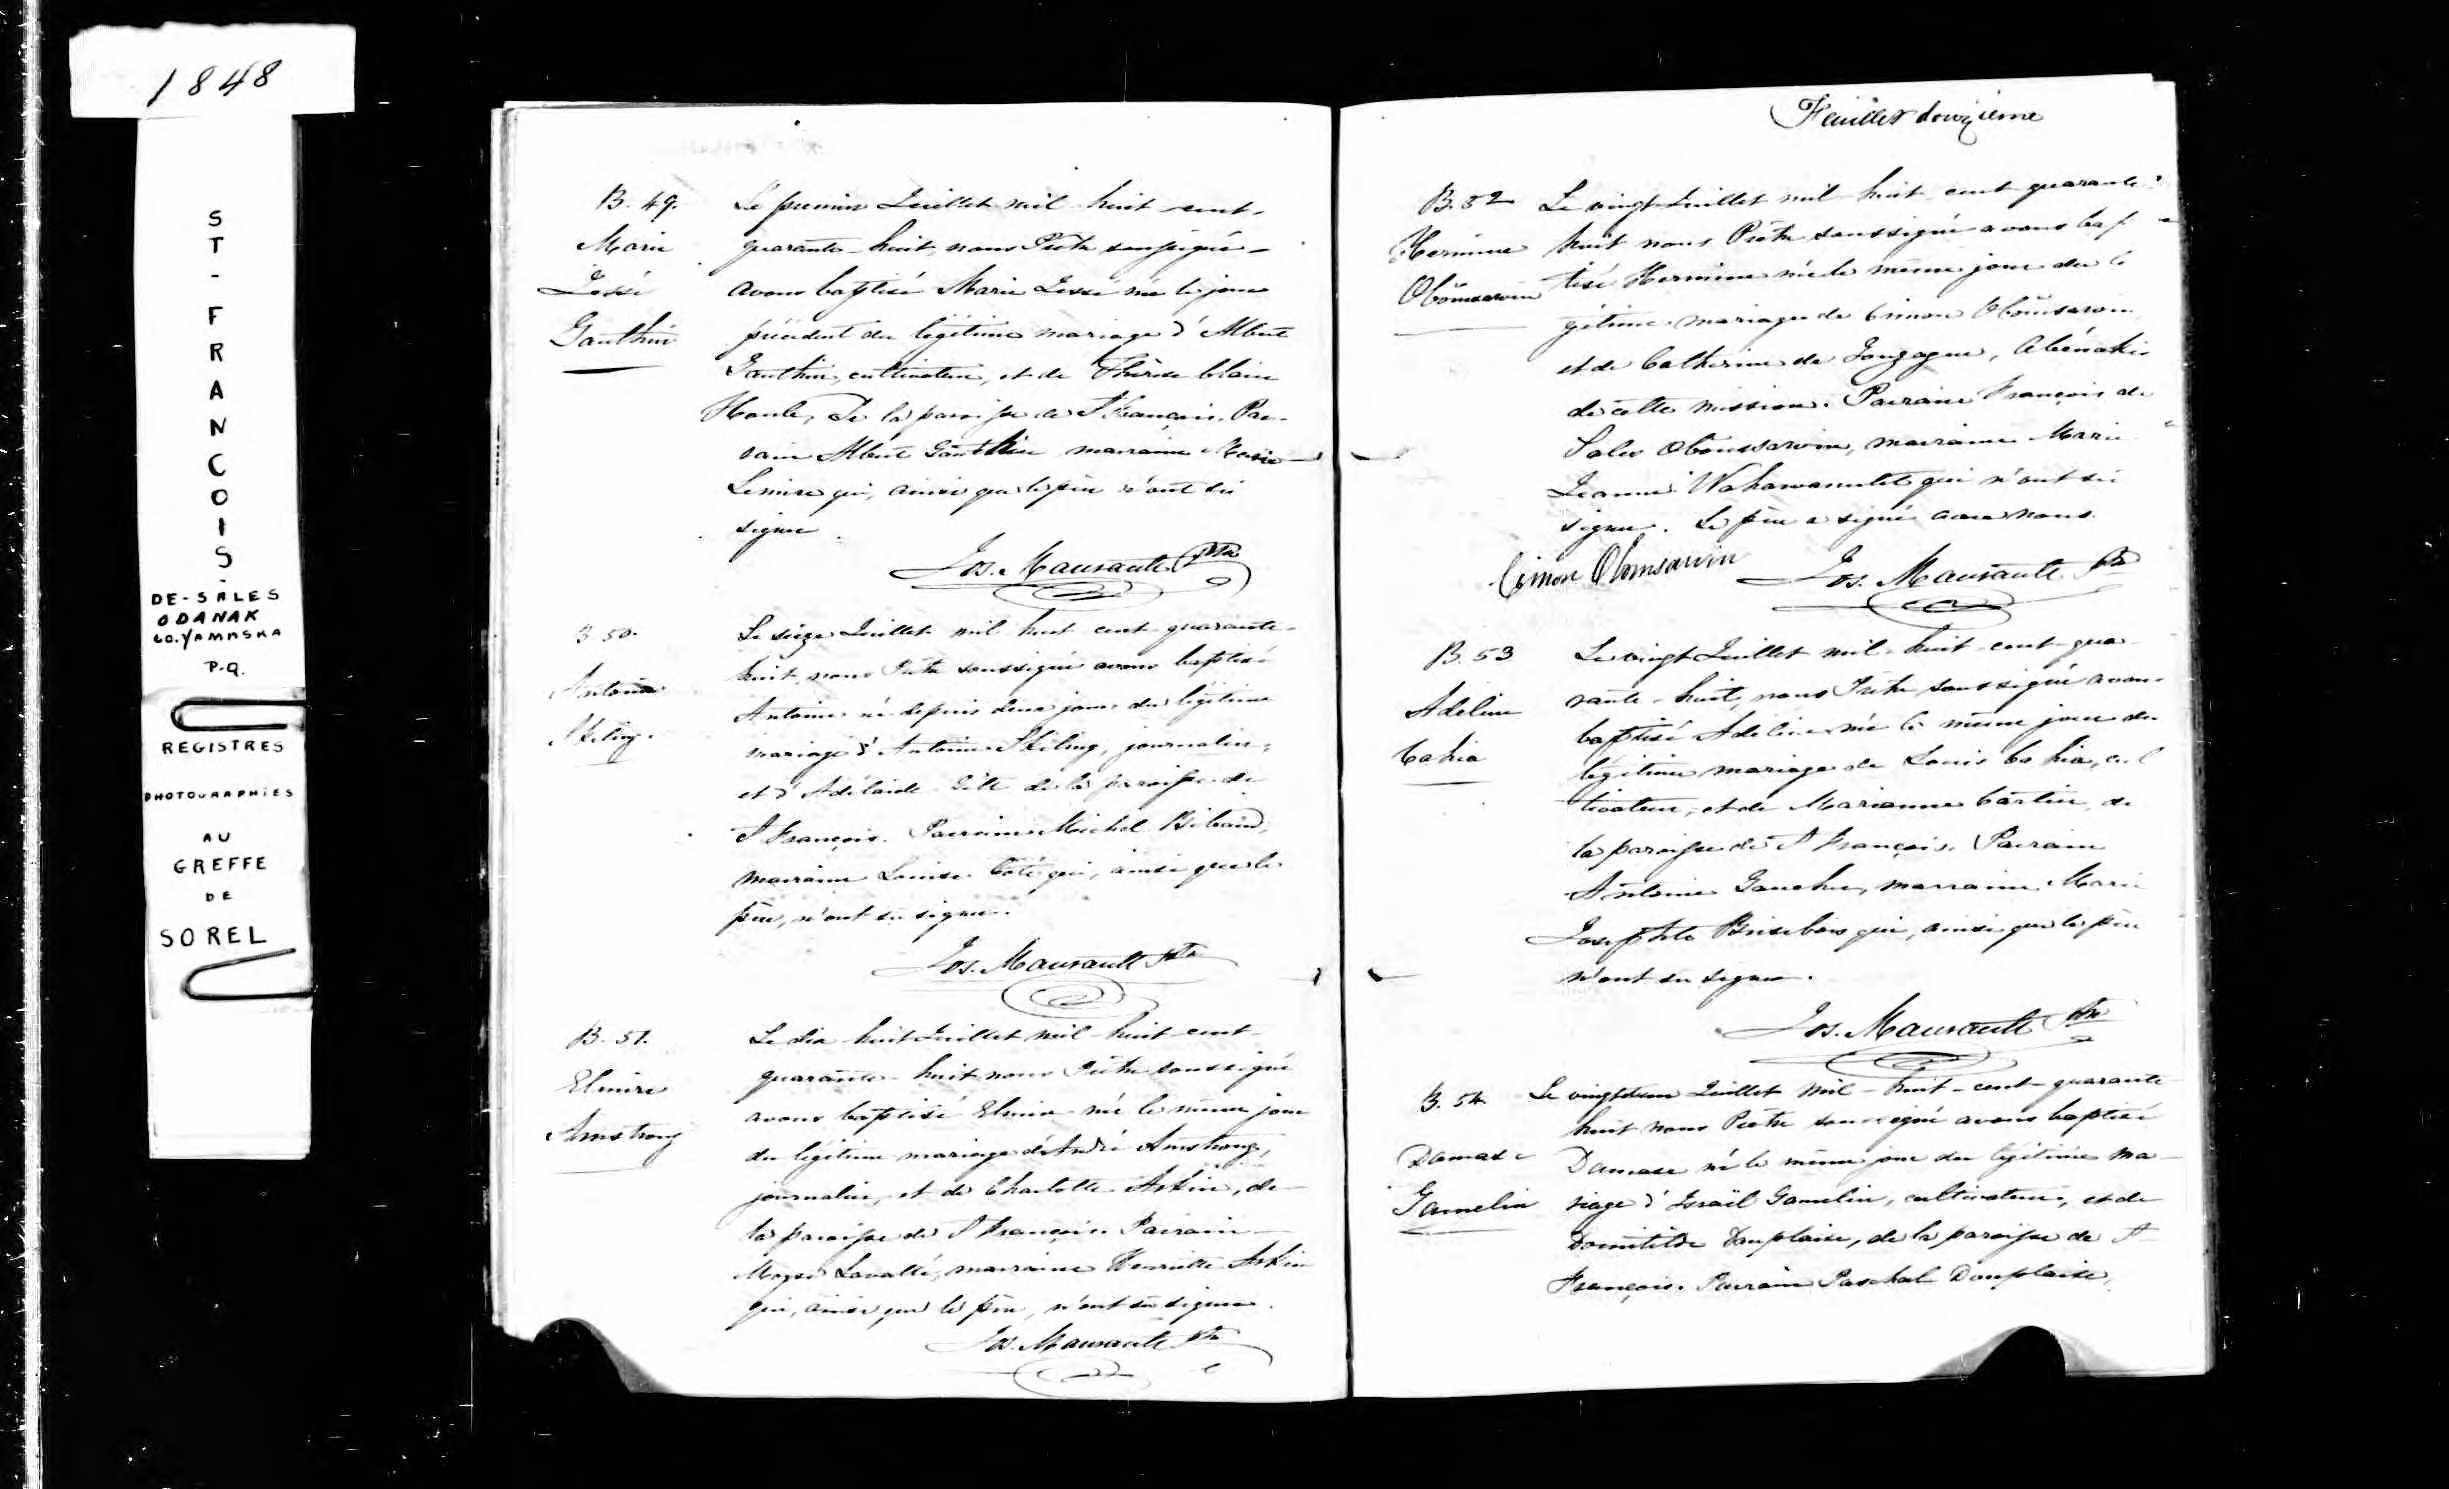 1848
ST-FRANCOIS-
DE-SALES
ODANAK
CO. YAMASKA
P.Q.
REGISTRES
PHOTOGRAPHIES
AU
GREFFE
DE
SOREL
B. 49.
Marie
Gauthier
Le premier Juillet mil huit cent
quarante-huit, nous Prêtre soussigné
avons baptisé Marie née le jour
précédent du légitime mariage d'Albert
Gauthier, cultivateur, et de Thérèse
Houle, de la paroisse de St François. Par-
rain Albert Gauthier marraine Marie
Lemire qui, ainsi que le père n'ont su
signer.
Jos. Maurault Ptre
B 50.
Antoine
Le seize Juillet mil huit cent quarante-
huit, nous Prêtre soussigné avons baptisé
Antoine né depuis deux jours du légitime
mariage d'Antoine journalier,
et d'Adélaïde de la paroisse de
St François. Parrain Michel
marraine Louise Coté qui, ainsi que le
père, n'ont su signer.
Jos. Maurault Ptre
B. 51.
Elmire
Armstrong
Le dix-huit Juillet mil-huit-cent-
quarante-huit nous Prêtre soussigné
avons baptisé Elmire née le même jour
du légitime mariage d'André Armstrong,
journalier, et de Charlotte Askin, de
la paroisse de St François. Parrain
Moyse Lavallé, marraine Henriette Askin
qui, ainsi que le père, n'ont su signer.
Jos. Maurault Ptre
Feuillet douzième
B. 52
Hermine
Obomsawin
Le vingt Juillet mil-huit-cent-quarante-
huit nous Prêtre soussigné avons bap-
tisé Hermine née le même jour du lé
gitime mariage de Simon Obomsawin
et de Catherine de Gonzague, Abénakis
de cette mission. Parrain François de
Sales Obomsawin, marraine Marie
Jeanne qui n'ont su
signer. Le père a signé avec nous.
Simon Obomsawin Jos. Maurault Ptre
B. 53
Adéline
Cahia
Le vingt Juillet mil-huit-cent-qua-
rante-huit, nous Prêtre soussigné avons
baptisé Adéline née le même jour du
légitime mariage de Louis Cahia, cul
tivateur, et de Marianne Cartier, de
la paroisse de St François. Parrain
Antoine Gaucher, marraine Marie
Josephte Brisebois qui, ainsi que le père
n'ont su signer.
Jos. Maurault Ptre
B. 54
Damase
Gamelin
Le vingtdeux Juillet mil-huit-cent-quarante
huit nous Prêtre soussigné avons baptisé
Damase né le même jour du légitime ma-
riage d'Israël Gamelin, cultivateur, et de
Domitilde Dauplaise, de la paroisse de St
François. Parrain Paschal Dauplaise,